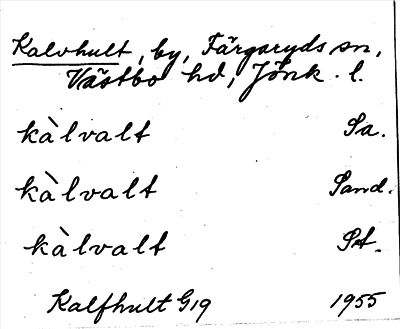 Kalvhult, by, Färgaryds sn,
Västbo hd, Jönk. l.
kàlvalt Sa.
kàlvalt Sand.
kàlvalt St.
Kalfhult G19 1955